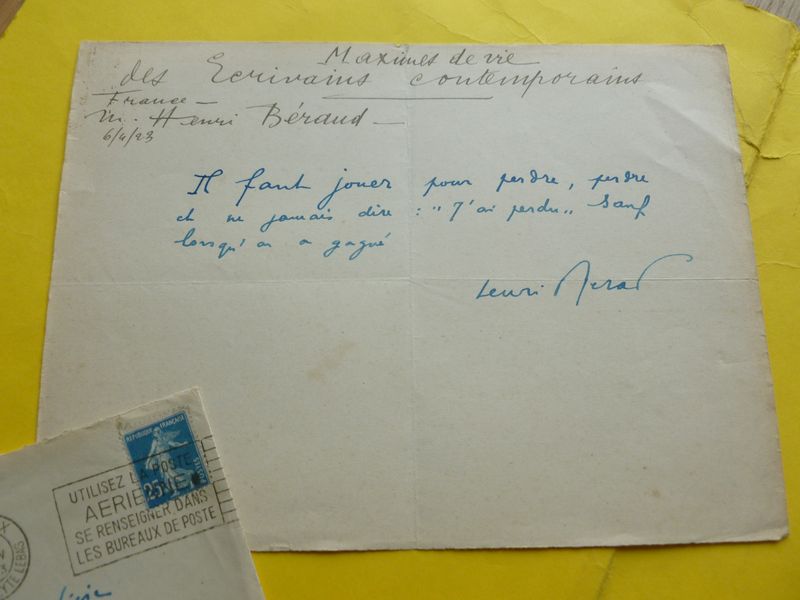 Maximes de vie
des Ecrivains contemporains
France —
M. Henri Béraud —
6/4/23
Il faut jouer pour perdre, perdre
et ne jamais dire : "J'ai perdu" Sauf
lorsqu'on a gagné
Henri Béraud
REPUBLIQUE FRANÇAISE
POSTES
25
UTILISEZ LA POSTE
AERIENNE
SE RENSEIGNER DANS
LES BUREAUX DE POSTE